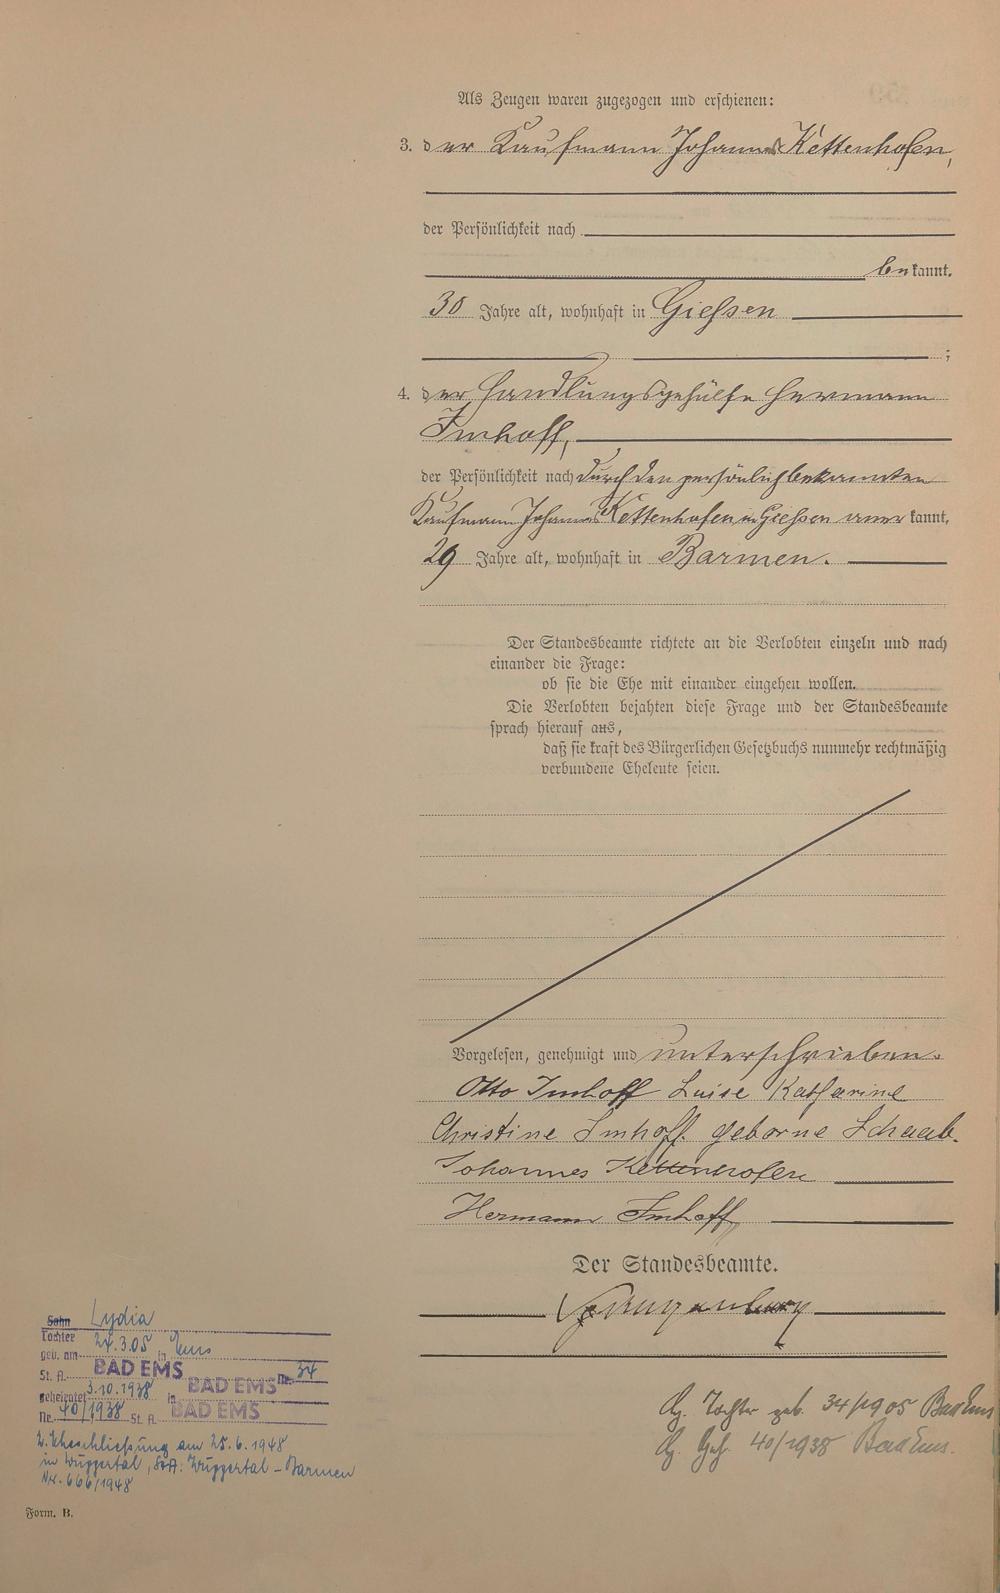 Als Zeugen waren zugezogen und erschienen:
3. der Kaufmann Johannes Kettenhofen,
der Persönlichkeit nach
bekannt,
30 Jahre alt, wohnhaft in Giessen
;
4. der Handlungsgehülfe Hermann
Imhoff,
der Persönlichkeit nach durch den persönlich bekannten
Kaufmann Johannes Kettenhofen in Giessen anerkannt,
29 Jahre alt, wohnhaft in Barmen.
Der Standesbeamte richtete an die Verlobten einzeln und nach
einander die Frage:
ob sie die Ehe mit einander eingehen wollen.
Die Verlobten bejahten diese Frage und der Standesbeamte
sprach hierauf aus,
daß sie kraft des Bürgerlichen Gesetzbuchs nunmehr rechtmäßig
verbundene Eheleute seien.
Vorgelesen, genehmigt und unterschrieben.
Otto Imhoff Luise Katharine
Christine Imhoff. geborne Schaab.
Johannes Kettenhofen
Hermann Imhoff
Der Standesbeamte.
Sohn Lydia
Tochter
geb. am 24.3.05 in Ems
St. A. BAD EMS Nr. 34
geheiratet 3.10.1938 in BAD EMS
Nr. 40/1938 St. A. BAD EMS
2. Eheschließung am 25.6.1948
in Wuppertal, StA: Wuppertal-Barmen
Nr. 666/1948
Tochter geb. 34/1905 Bad Ems
40/1938 Bad Ems.
Form. B.